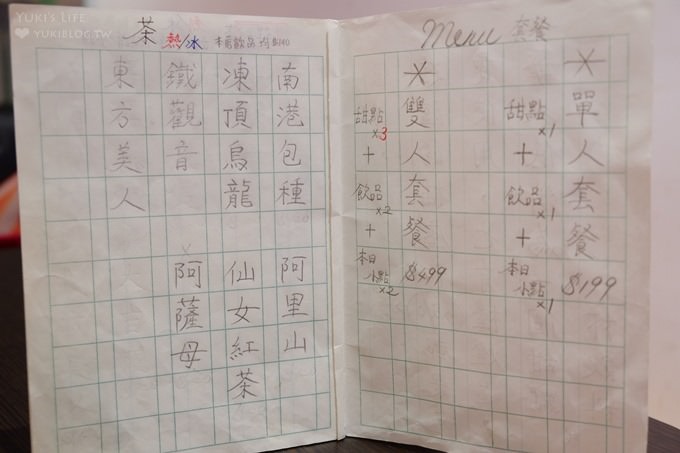 YUKI'S LIFE
♥ YUKIBLOG.TW
Menu 套餐
※單人套餐 $199
甜點x1
+
飲品x1
+
本日小點x1
※雙人套餐 $499
甜點x3
+
飲品x2
+
本日小點x2
茶
熱/冰
本頁飲品均$140
南港包種
阿里山
凍頂烏龍
仙女紅茶
鐵觀音
阿薩母
東方美人